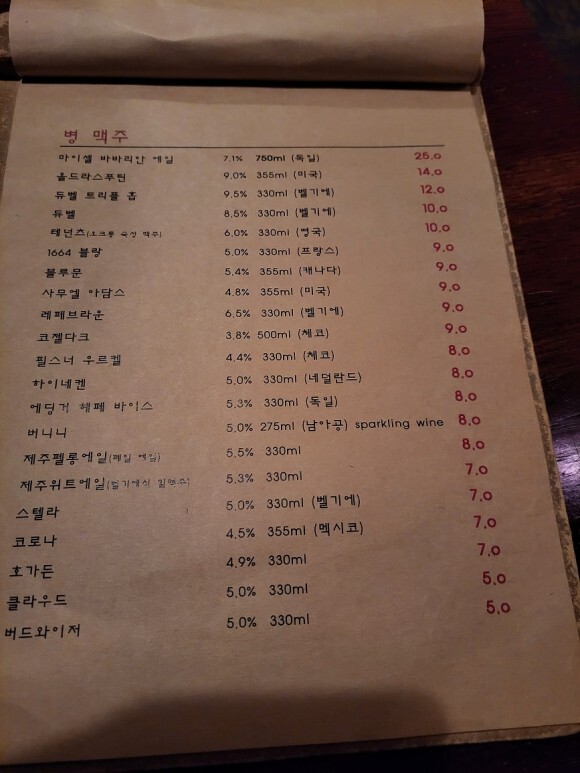 병 맥주
마이셀 바바리안 에일 7.1% 750ml (독일) 25.0
올드라스푸틴 9.0% 355ml (미국) 14.0
듀벨 트리플 홉 9.5% 330ml (벨기에) 12.0
듀벨 8.5% 330ml (벨기에) 10.0
테넌츠(오크통 숙성 맥주) 6.0% 330ml (영국) 10.0
1664 블랑 5.0% 330ml (프랑스) 9.0
블루문 5.4% 355ml (캐나다) 9.0
사무엘 아담스 4.8% 355ml (미국) 9.0
레페브라운 6.5% 330ml (벨기에) 9.0
코젤다크 3.8% 500ml (체코) 9.0
필스너 우르켈 4.4% 330ml (체코) 8.0
하이네켄 5.0% 330ml (네덜란드) 8.0
에딩거 헤페 바이스 5.3% 330ml (독일) 8.0
버니니 5.0% 275ml (남아공) sparkling wine 8.0
제주펠롱에일(페일 에일) 5.5% 330ml 8.0
제주위트에일 5.3% 330ml 7.0
스텔라 5.0% 330ml (벨기에) 7.0
코로나 4.5% 355ml (멕시코) 7.0
호가든 4.9% 330ml 7.0
클라우드 5.0% 330ml 5.0
버드와이저 5.0% 330ml 5.0